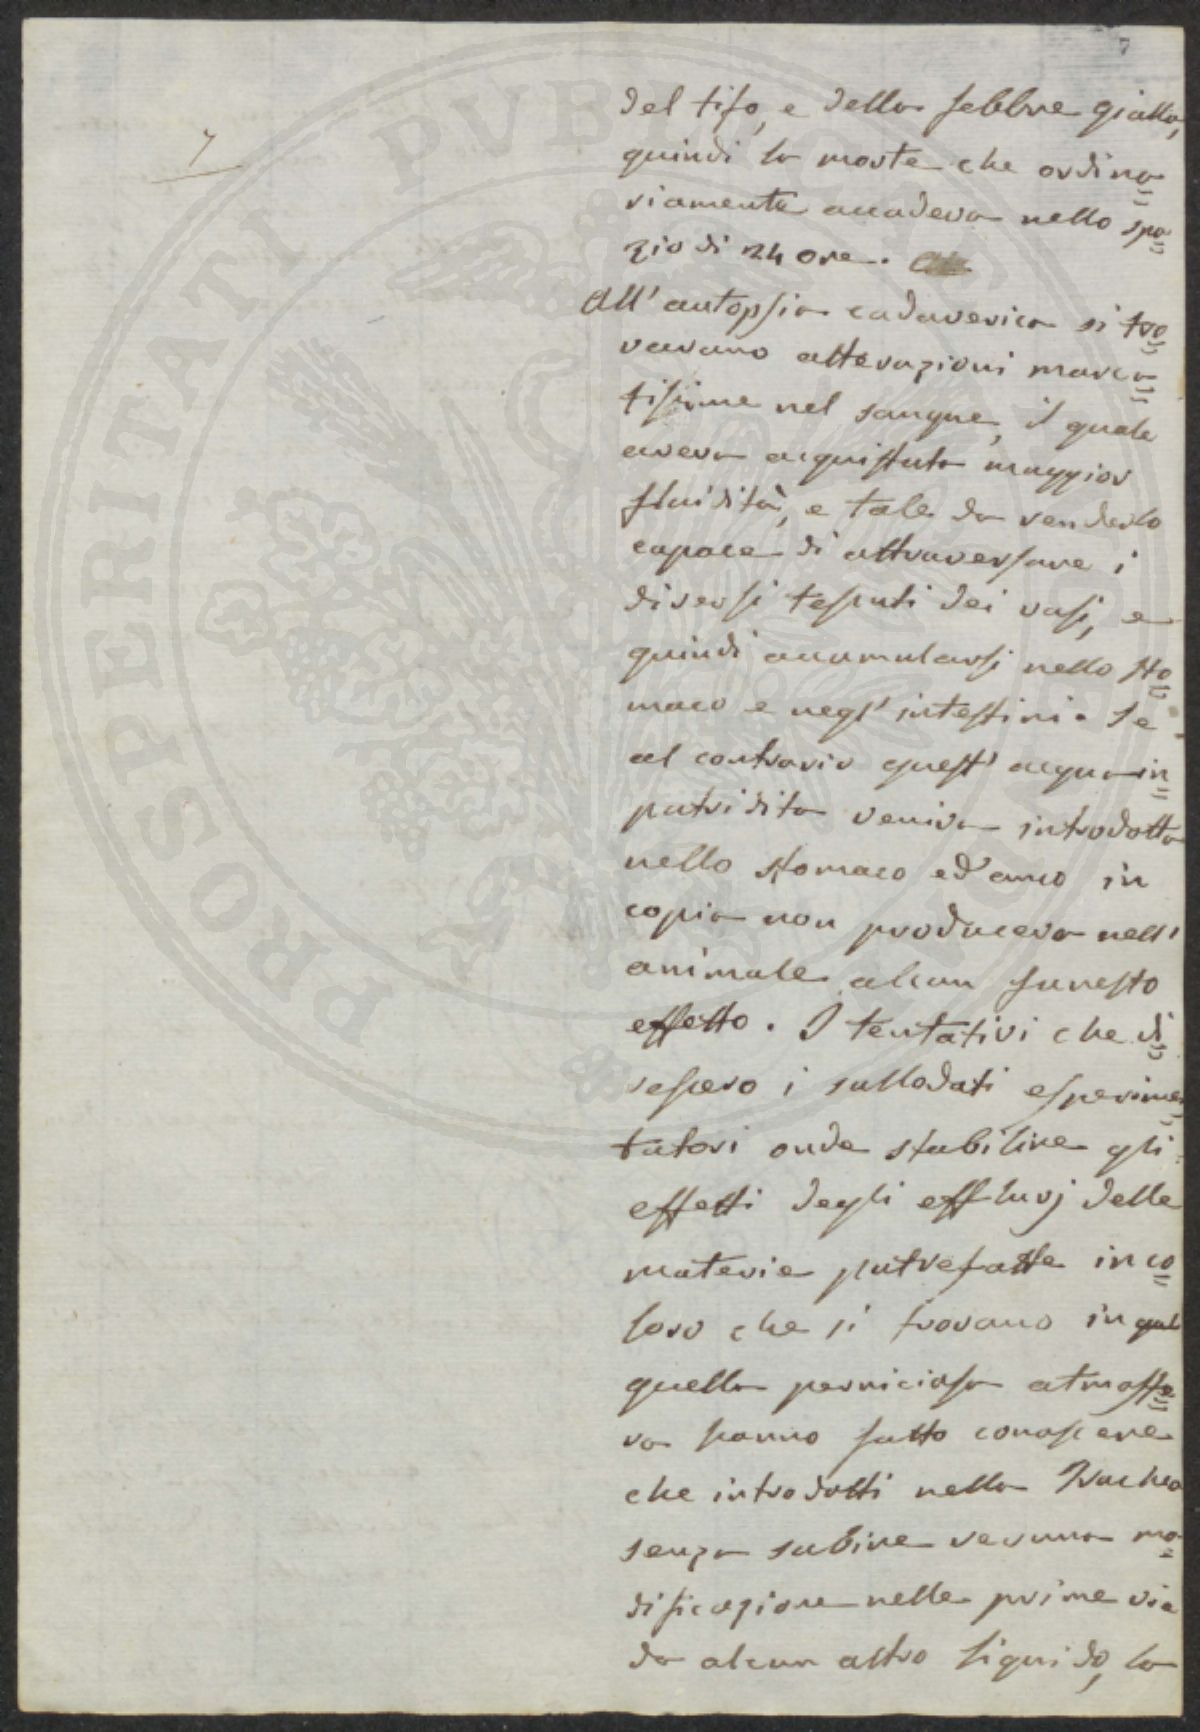 7
del tifo, e della febbre gialla,
quindi la morte che ordina=
riamente accadeva nello spa=
zio di 24 ore.
All' autopsia cadaverica si tro=
vavano alterazioni marca=
tissime nel sangue, il quale
aveva acquistato maggior
fluidità, e tale da renderlo
capace di attraversare i
diversi tessuti dei vasi, e
quindi accumularsi nello sto=
maco e negl' intestini. Se
al contrario quest' acqua im=
putridita veniva introdotta
nello stomaco ed anco in
copia non produceva nell'
animale alcun funesto
effetto. I tentativi che di=
ressero i sullodati esperimen=
tatori onde stabilire gli
effetti degli effluvj delle
materie putrefatte in co=
loro che si trovano in
quella perniciosa atmosfe=
ra hanno fatto conoscere
che introdotti nella Trachea
senza subire veruna mo=
dificazione nelle prime vie
da alcun altro liquido, la
PROSPERITATI PVBLICAE